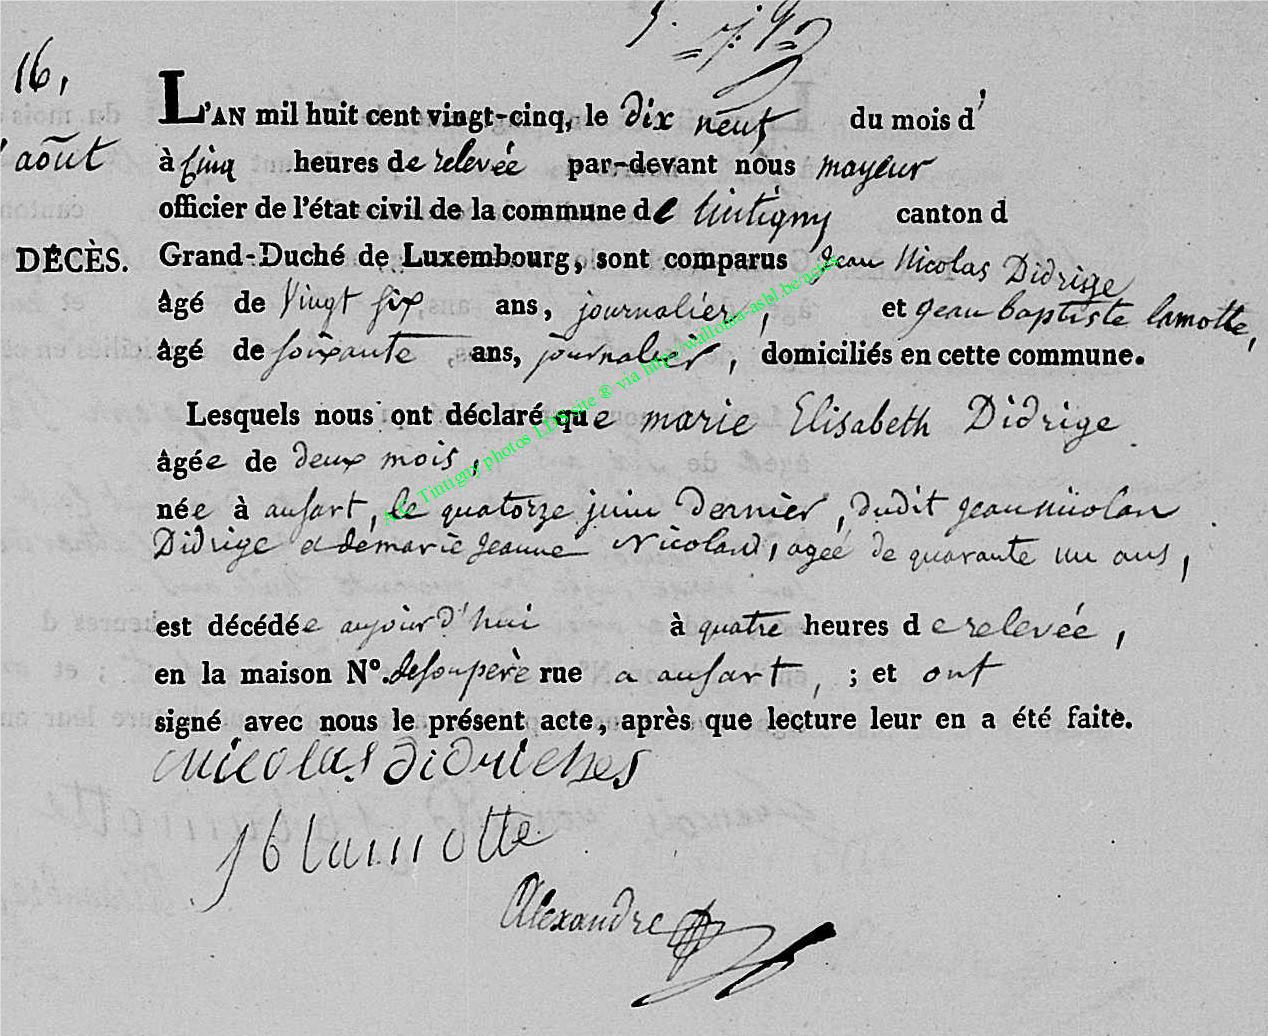 16.
août
DÉCÈS.
L'AN mil huit cent vingt-cinq, le dix neuf du mois d'
à cinq heures de relevée par-devant nous mayeur
officier de l'état civil de la commune de tintigny canton d
Grand-Duché de Luxembourg, sont comparus jean Nicolas Didrige
âgé de Vingt six ans, journalier, et jean baptiste lamotte,
âgé de soixante ans, journalier, domiciliés en cette commune.
Lesquels nous ont déclaré que marie Elisabeth Didrige
âgée de deux mois,
née à ansart, le quatorze juin dernier, dudit jean nicolas
Didrige et de marie jeanne Nicolard, agée de quarante un ans,
est décédée aujourd'hui à quatre heures de relevée,
en la maison N°. de son père rue a ansart, ; et ont
signé avec nous le présent acte, après que lecture leur en a été faite.
Nicolas didriches
J b lamotte
Alexandre
A.C. Tintigny photos LDS site ® via http://wallonia-asbl.be/actes